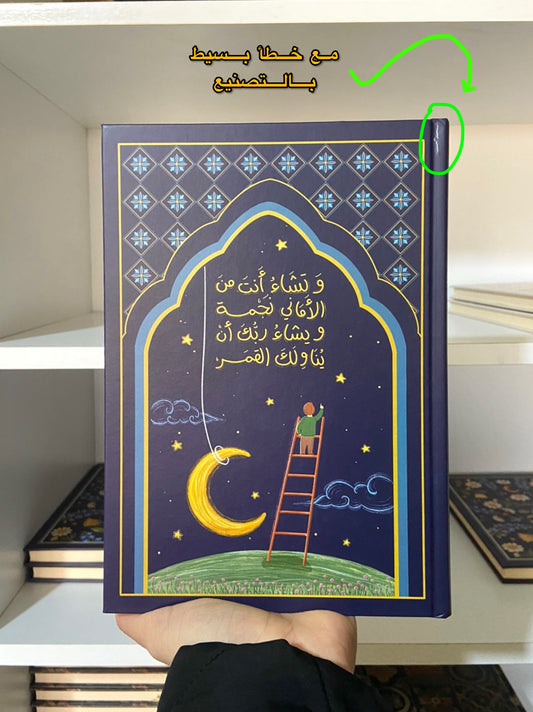 مع خطأ بسيط
بالتصنيع
وَ تَشَاءُ أَنتَ مِنَ
الأَمَاني نَجْمَة
وَ يشاءُ ربُّكَ أنْ
يُنَاوِلَكَ القَمَر